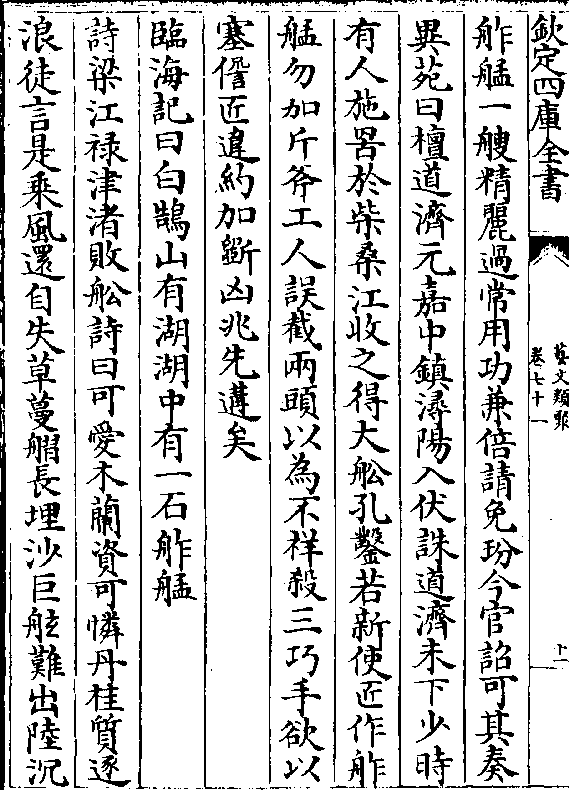 欽定四庫全書
藝文類聚
卷七十一
十一
舴艋一艘精麗過常用功兼倍請免玢今官詔可其奏
異苑曰檀道濟元嘉中鎮潯陽入伏誅道濟未下少時
有人施罟於柴桑江收之得大船孔鑿若新使匠作舴
艋勿加斤斧工人誤截兩頭以為不祥殺三巧手欲以
塞僭匠違約加斵凶兆先遘矣
臨海記曰白鵠山有湖湖中有一石舴艋
詩梁江祿津渚敗船詩曰可愛木蘭資可憐丹桂質逐
浪徒言是乘風還自失草蔓艒長埋沙巨舷難出陸沉